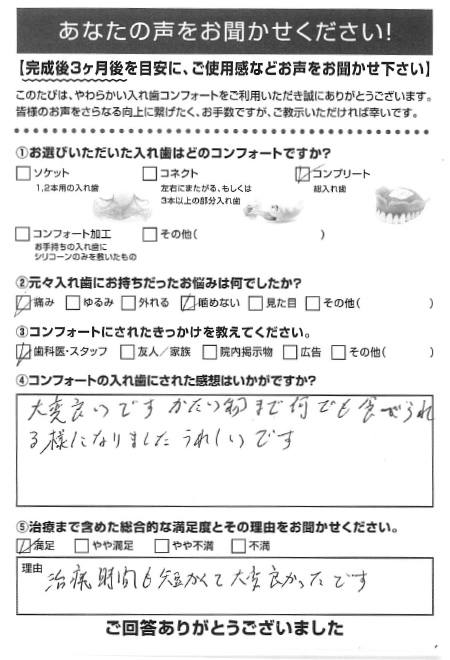 あなたの声をお聞かせください!
【完成後3ヶ月後を目安に、ご使用感などお声をお聞かせ下さい】
このたびは、やわらかい入れ歯コンフォートをご利用いただき誠にありがとうございます。
皆様のお声をさらなる向上に繋げたく、お手数ですが、ご教示いただければ幸いです。
①お選びいただいた入れ歯はどのコンフォートですか?
ソケット
1,2本用の入れ歯
コネクト
左右にまたがる、もしくは
3本以上の部分入れ歯
コンプリート
総入れ歯
コンフォート加工
お手持ちの入れ歯に
シリコーンのみを敷いたもの
その他( )
②元々入れ歯にお持ちだったお悩みは何でしたか?
痛み ゆるみ 外れる 噛めない 見た目 その他( )
③コンフォートにされたきっかけを教えてください。
歯科医・スタッフ 友人/家族 院内掲示物 広告 その他( )
④コンフォートの入れ歯にされた感想はいかがですか?
大変良いです かたい物まで何でも食べられ
る様になりましたうれしいです
⑤治療まで含めた総合的な満足度とその理由をお聞かせください。
満足 やや満足 やや不満 不満
理由
治療時間も短かくて大変良かったです
ご回答ありがとうございました